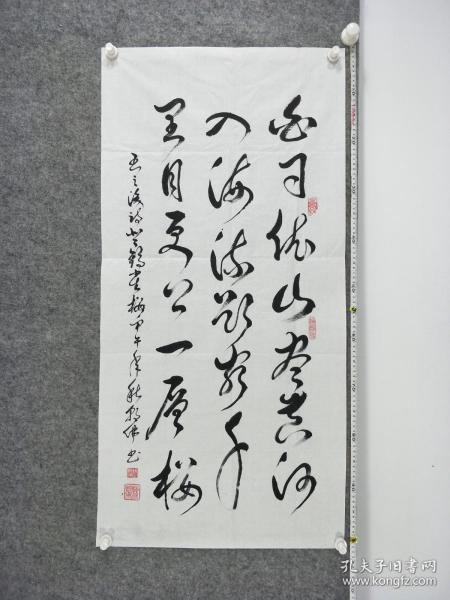 白日依山尽黄河
入海流欲穷千
里目更上一层楼
王之涣诗登鹳雀楼甲午年秋书
孔夫子旧书网
www.kongfz.com